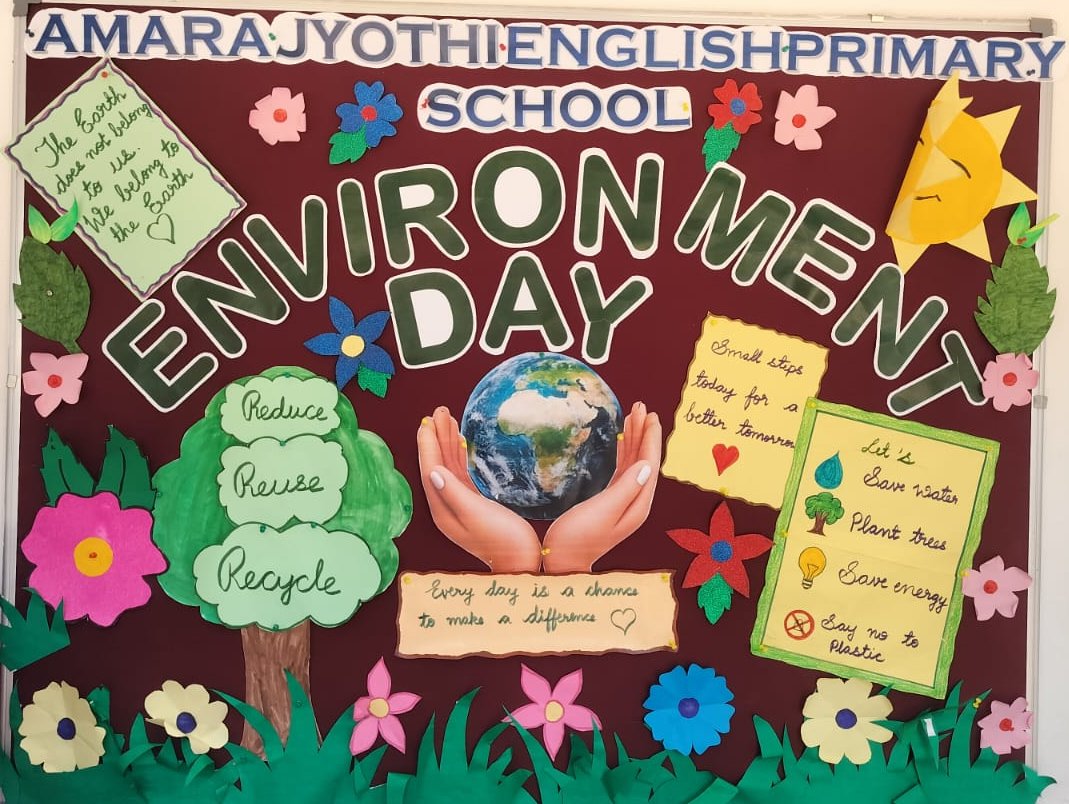 AMARA JYOTHI ENGLISH PRIMARY
SCHOOL
The Earth
does not belong
to us.
We belong to
the Earth
ENVIRONMENT
DAY
Reduce
Reuse
Recycle
Every day is a chance
to make a difference
Small steps
today for a
better tomorrow
Let's
Save water
Plant trees
Save energy
Say no to
Plastic